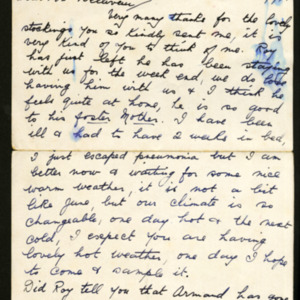 Very many thanks for the lovely
stockings you so kindly sent me, it is
very kind of you to think of me. Roy
has just left he has been staying
with us for the week end, we do love
having him with us & I think he
feels quite at home, he is so good
to his foster Mother. I have been
ill & had to have 2 weeks in bed,
I just escaped pneumonia but I am
better now & waiting for some nice
warm weather, it is not a bit
like June, but our climate is so
changeable, one day hot & the next
cold, I expect you are having
lovely hot weather, one day I hope
to come & sample it.
Did Roy tell you that Armand has gone